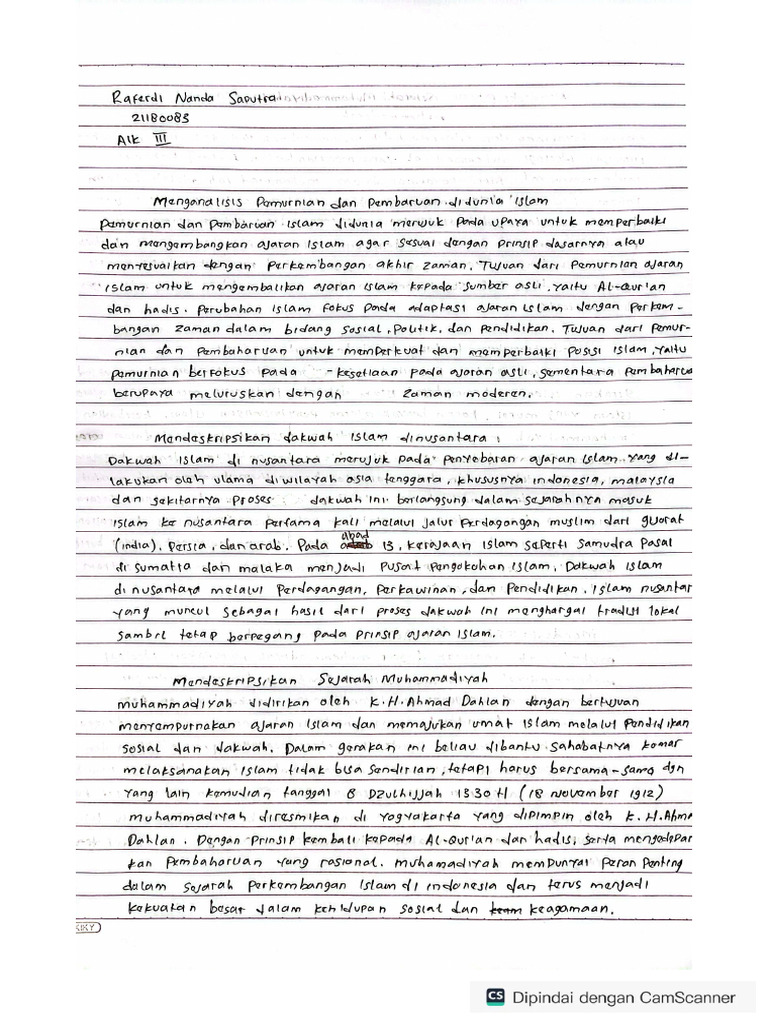 Raferdi Nanda Saputra
21180083
AIK III
Menganalisis Pemurnian dan Pembaruan didunia islam
Pemurnian dan Pembaruan islam didunia merujuk pada upaya untuk memperbaiki
dan mengembangkan ajaran Islam agar sesuai dengan prinsip dasarnya atau
menyesuaikan dengan perkembangan akhir zaman. Tujuan dari Pemurnian ajaran
islam untuk mengembalikan ajaran islam kepada sumber asli, yaitu Al-Qur'an
dan hadis. Perubahan Islam fokus pada adaptasi ajaran islam dengan perkem-
bangan zaman dalam bidang sosial, Politik, dan Pendidikan. Tujuan dari Pemur-
nian dan Pembaharuan untuk memperkuat dan memperbaiki posisi islam, yaitu
Pemurnian berfokus pada - kesetiaan pada ajaran asli, sementara Pembaharua
berupaya meluruskan dengan zaman moderen.
Mendeskripsikan dakwah islam dinusantara :
Dakwah Islam di nusantara merujuk pada penyebaran ajaran Islam yang di-
lakukan oleh ulama diwilayah asia tenggara, khususnya indonesia, malaysia
dan sekitarnya proses dakwah ini berlangsung dalam sejarahnya masuk
islam ke nusantara pertama kali melalui jalur perdagangan muslim dari gujarat
(india), Persia, dan arab. Pada abad 13, kerajaan Islam seperti Samudra Pasai
di sumatra dan malaka menjadi pusat pengokohan islam. Dakwah islam
dinusantara melalui perdagangan, perkawinan, dan Pendidikan. Islam nusantar
yang muncul sebagai hasil dari proses dakwah ini menghargai tradisi lokal
sambil tetap berpegang pada prinsip ajaran islam.
Mendeskripsikan Sejarah Muhammadiyah
muhammadiyah didirikan oleh K.H.Ahmad Dahlan dengan bertujuan
menyempurnakan ajaran Islam dan memajukan umat Islam melalui Pendidikan
sosial dan dakwah. Dalam gerakan ini beliau dibantu sahabatnya karna
melaksanakan Islam tidak bisa sendirian, tetapi harus bersama-sama dgn
yang lain kemudian tanggal 8 Dzulhijjah 1330 H (18 November 1912)
muhammadiyah diresmikan di Yogyakarta yang dipimpin oleh K.H.Ahma
Dahlan. Dengan prinsip kembali kepada Al-Qur'an dan hadis, serta mengedepan
kan Pembaharuan yang rasional. Muhamadiyah mempunyai Peran Penting
dalam sejarah perkembangan Islam di indonesia dan terus menjadi
kekuatan besar dalam kehidupan sosial dan keagamaan.
KIKY
CS Dipindai dengan CamScanner